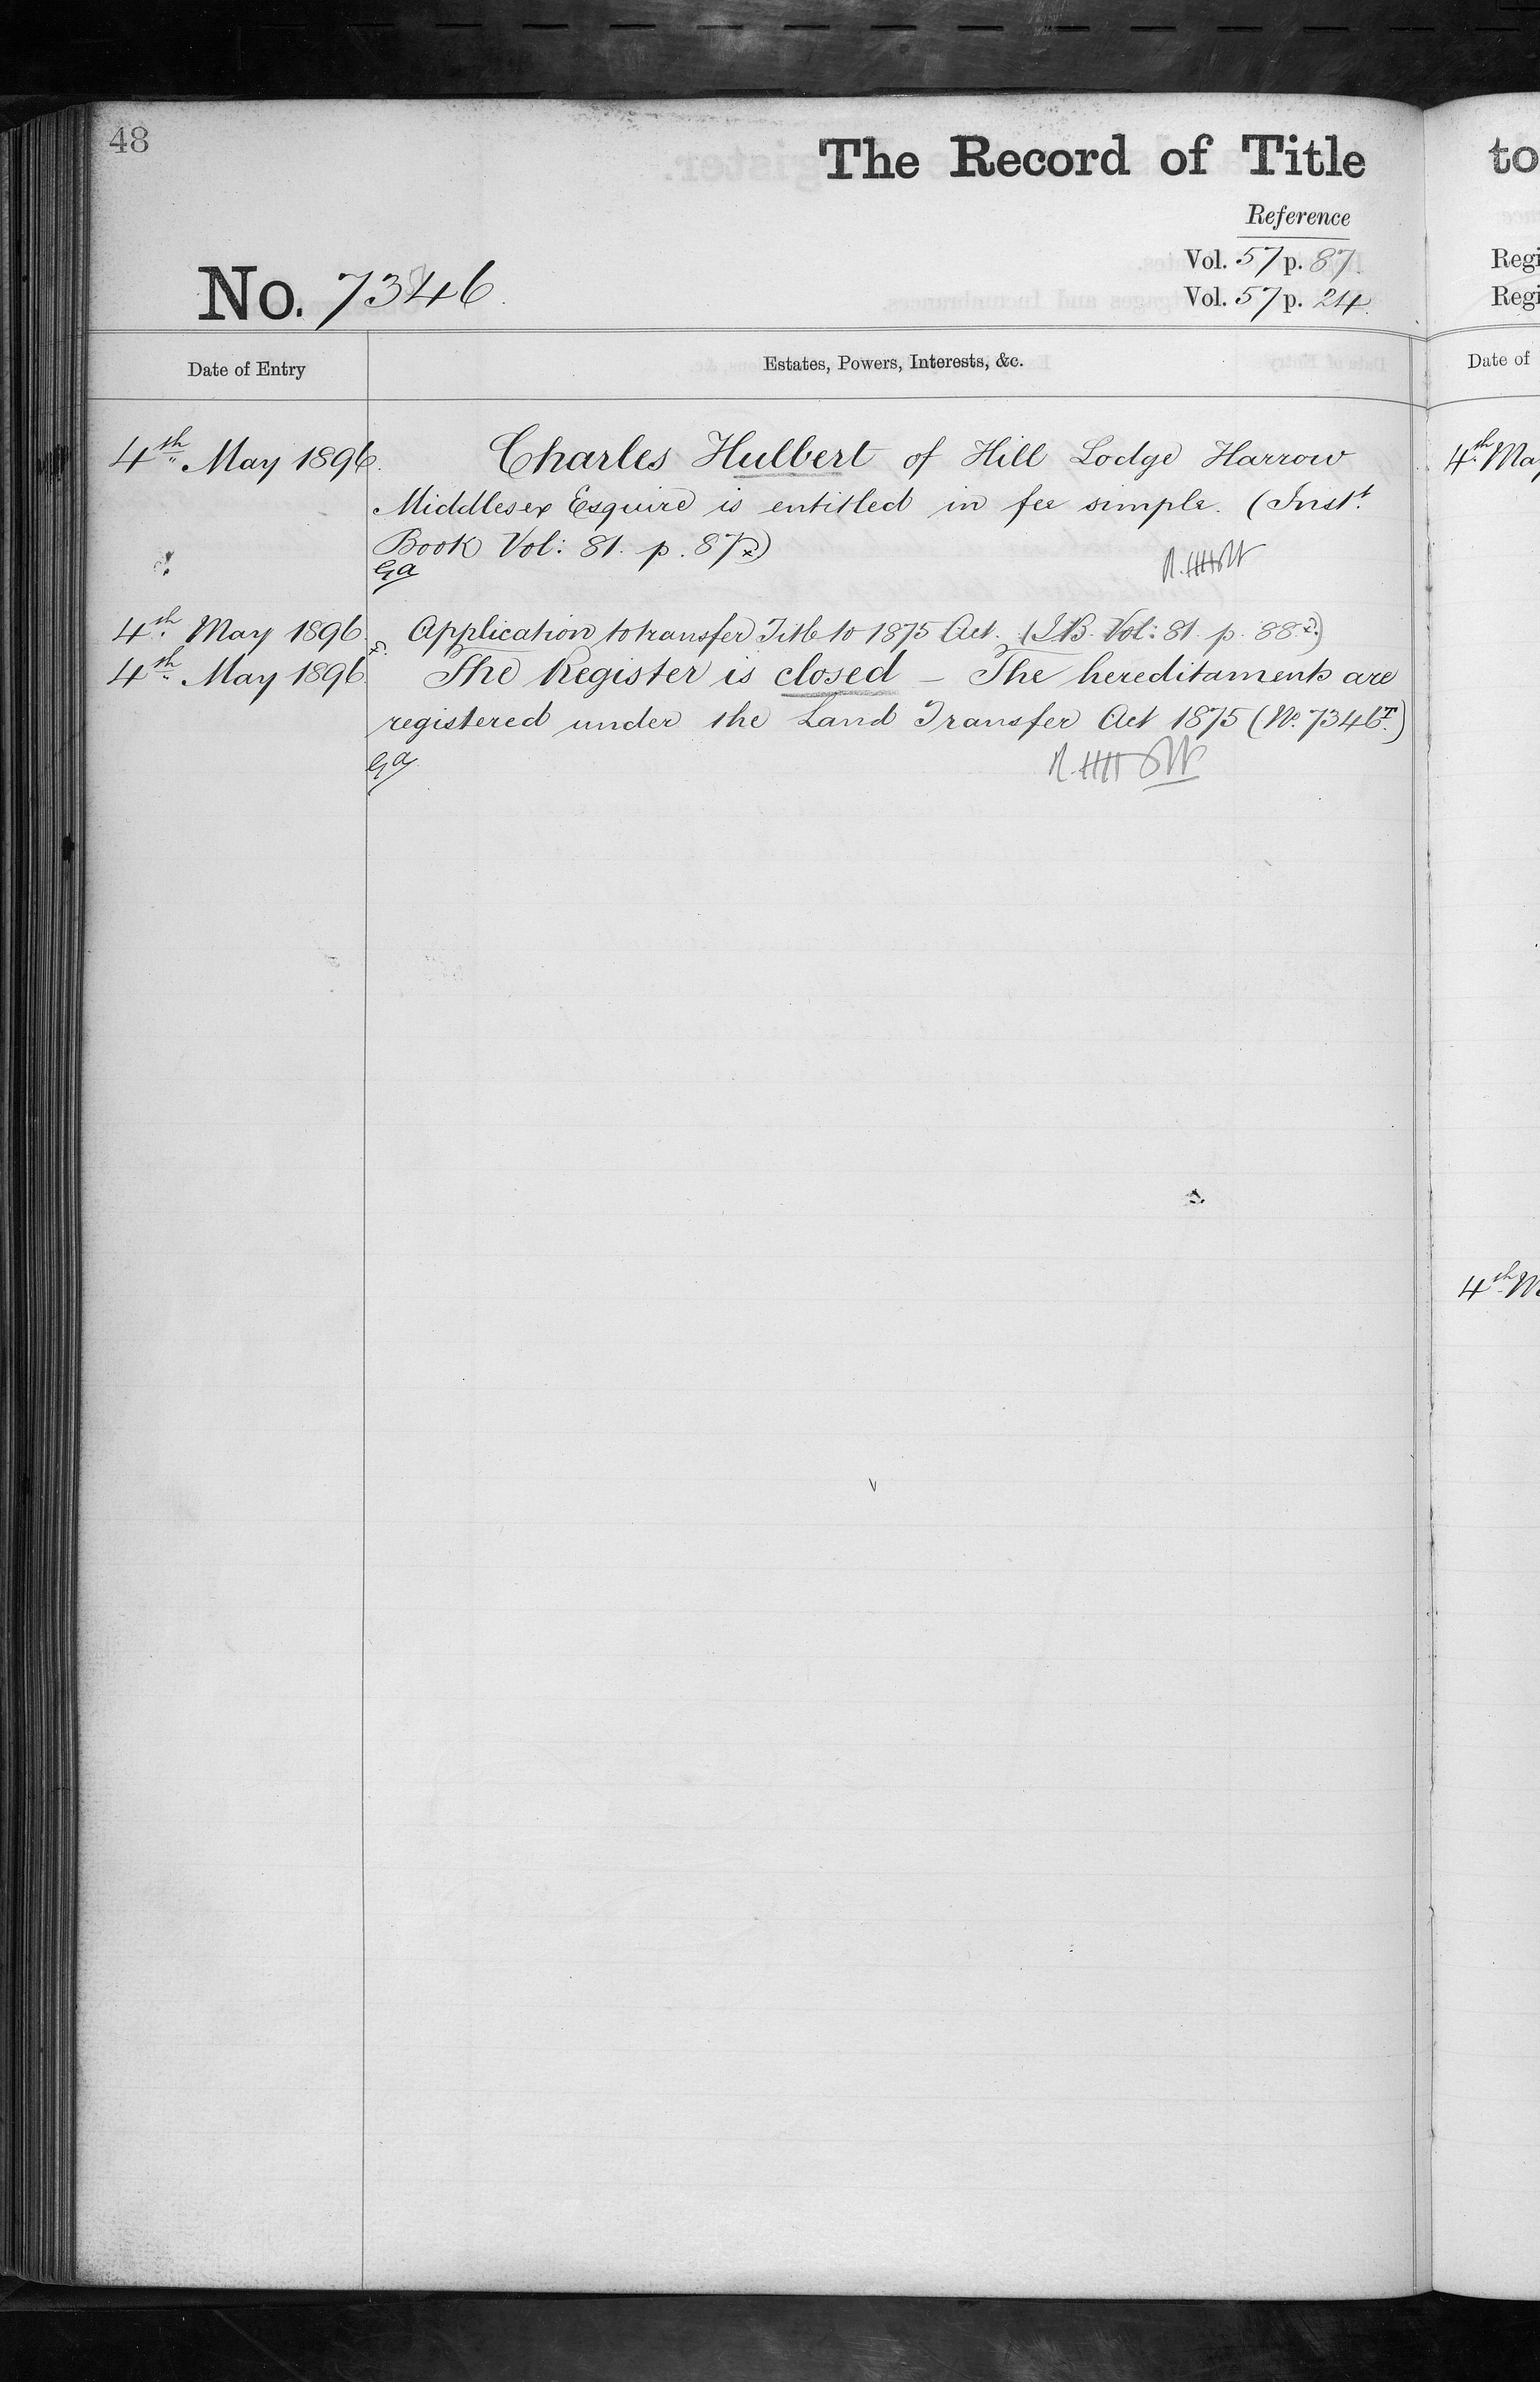 48
The Record of Title
Reference
Vol. 57 p. 87.
No. 7346.
Vol. 57 p. 24.
Date of Entry
Estates, Powers, Interests, &c.
4th May 1896.
Charles Hulbert of Hill Lodge Harrow
Middlesex Esquire is entitled in fee simple. (Inst.
Book Vol: 81. p. 87)
Ga
4th May 1896.
Application to transfer Title to 1875 Act. (I.B. Vol: 81. p. 88)
4th May 1896
The Register is closed – The hereditaments are
registered under the Land Transfer Act 1875 (No. 7346T.)
Ga
to
Regi
Regi
Date of
4th May
4th M